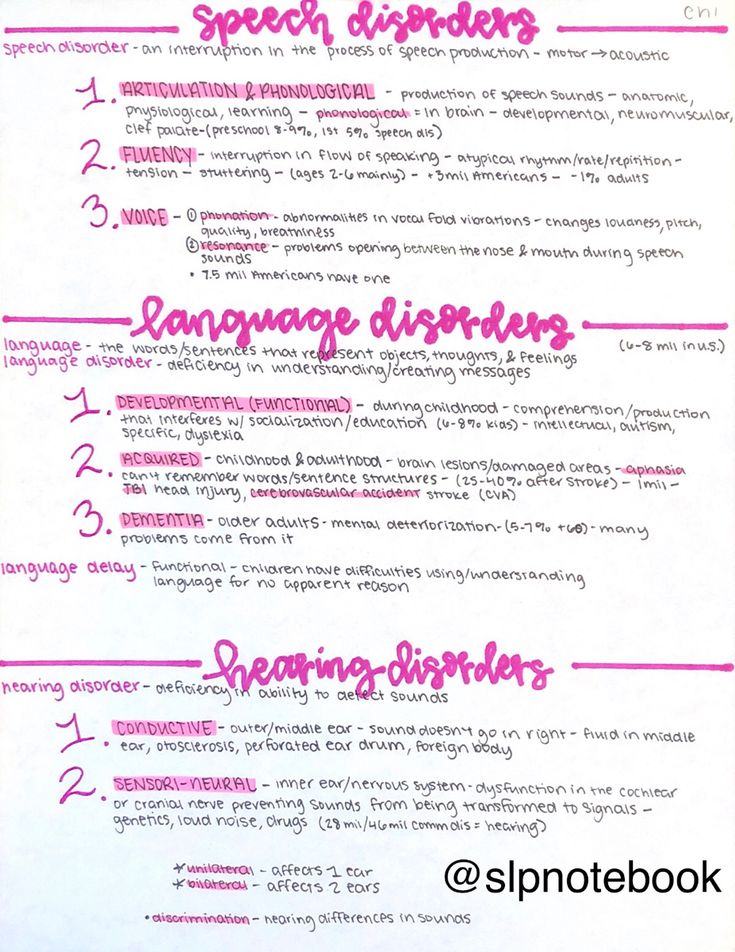 speech disorders
ch1
speech disorder - an interruption in the process of speech production - motor → acoustic
1. ARTICULATION & PHONOLOGICAL - production of speech sounds - anatomic,
physiological, learning - phonological = in brain - developmental, neuromuscular,
clef palate - (preschool 8-9%, 1st 5% speech dis)
2. FLUENCY - interruption in flow of speaking - atypical rhythm/rate/repitition -
tension - stuttering - (ages 2-6 mainly) - +3mil Americans - -1% adults
3. VOICE - ① phonation - abnormalities in vocal fold vibrations - changes loudness, pitch,
quality, breathiness
② resonance - problems opening between the nose & mouth during speech
sounds
• 7.5 mil Americans have one
language disorders
language - the words/sentences that represent objects, thoughts, & feelings (6-8 mil in u.s.)
language disorder - deficiency in understanding/creating messages
1. DEVELOPMENTAL (FUNCTIONAL) - during childhood - comprehension/production
that interferes w/ socialization/education (6-8% kids) - intellectual, autism,
specific, dyslexia
2. ACQUIRED - childhood & adulthood - brain lesions/damaged areas - aphasia
can't remember words/sentence structures - (25-40% after stroke) - 1mil -
TBI head injury, cerebrovascular accident stroke (CVA)
3. DEMENTIA - older adults - mental deteriorization - (5-7% +60) - many
problems come from it
language delay - functional - children have difficulties using/understanding
language for no apparent reason
hearing disorders
hearing disorder - deficiency in ability to detect sounds
1. CONDUCTIVE - outer/middle ear - sound doesn't go in right - fluid in middle
ear, otosclerosis, perforated ear drum, foreign body
2. SENSORI-NEURAL - inner ear/nervous system - dysfunction in the cochlear
or cranial nerve preventing sounds from being transformed to signals -
genetics, loud noise, drugs (28 mil/46 mil comm dis = hearing)
*unilateral - affects 1 ear
*bilateral - affects 2 ears
@slpnotebook
• discrimination - hearing differences in sounds